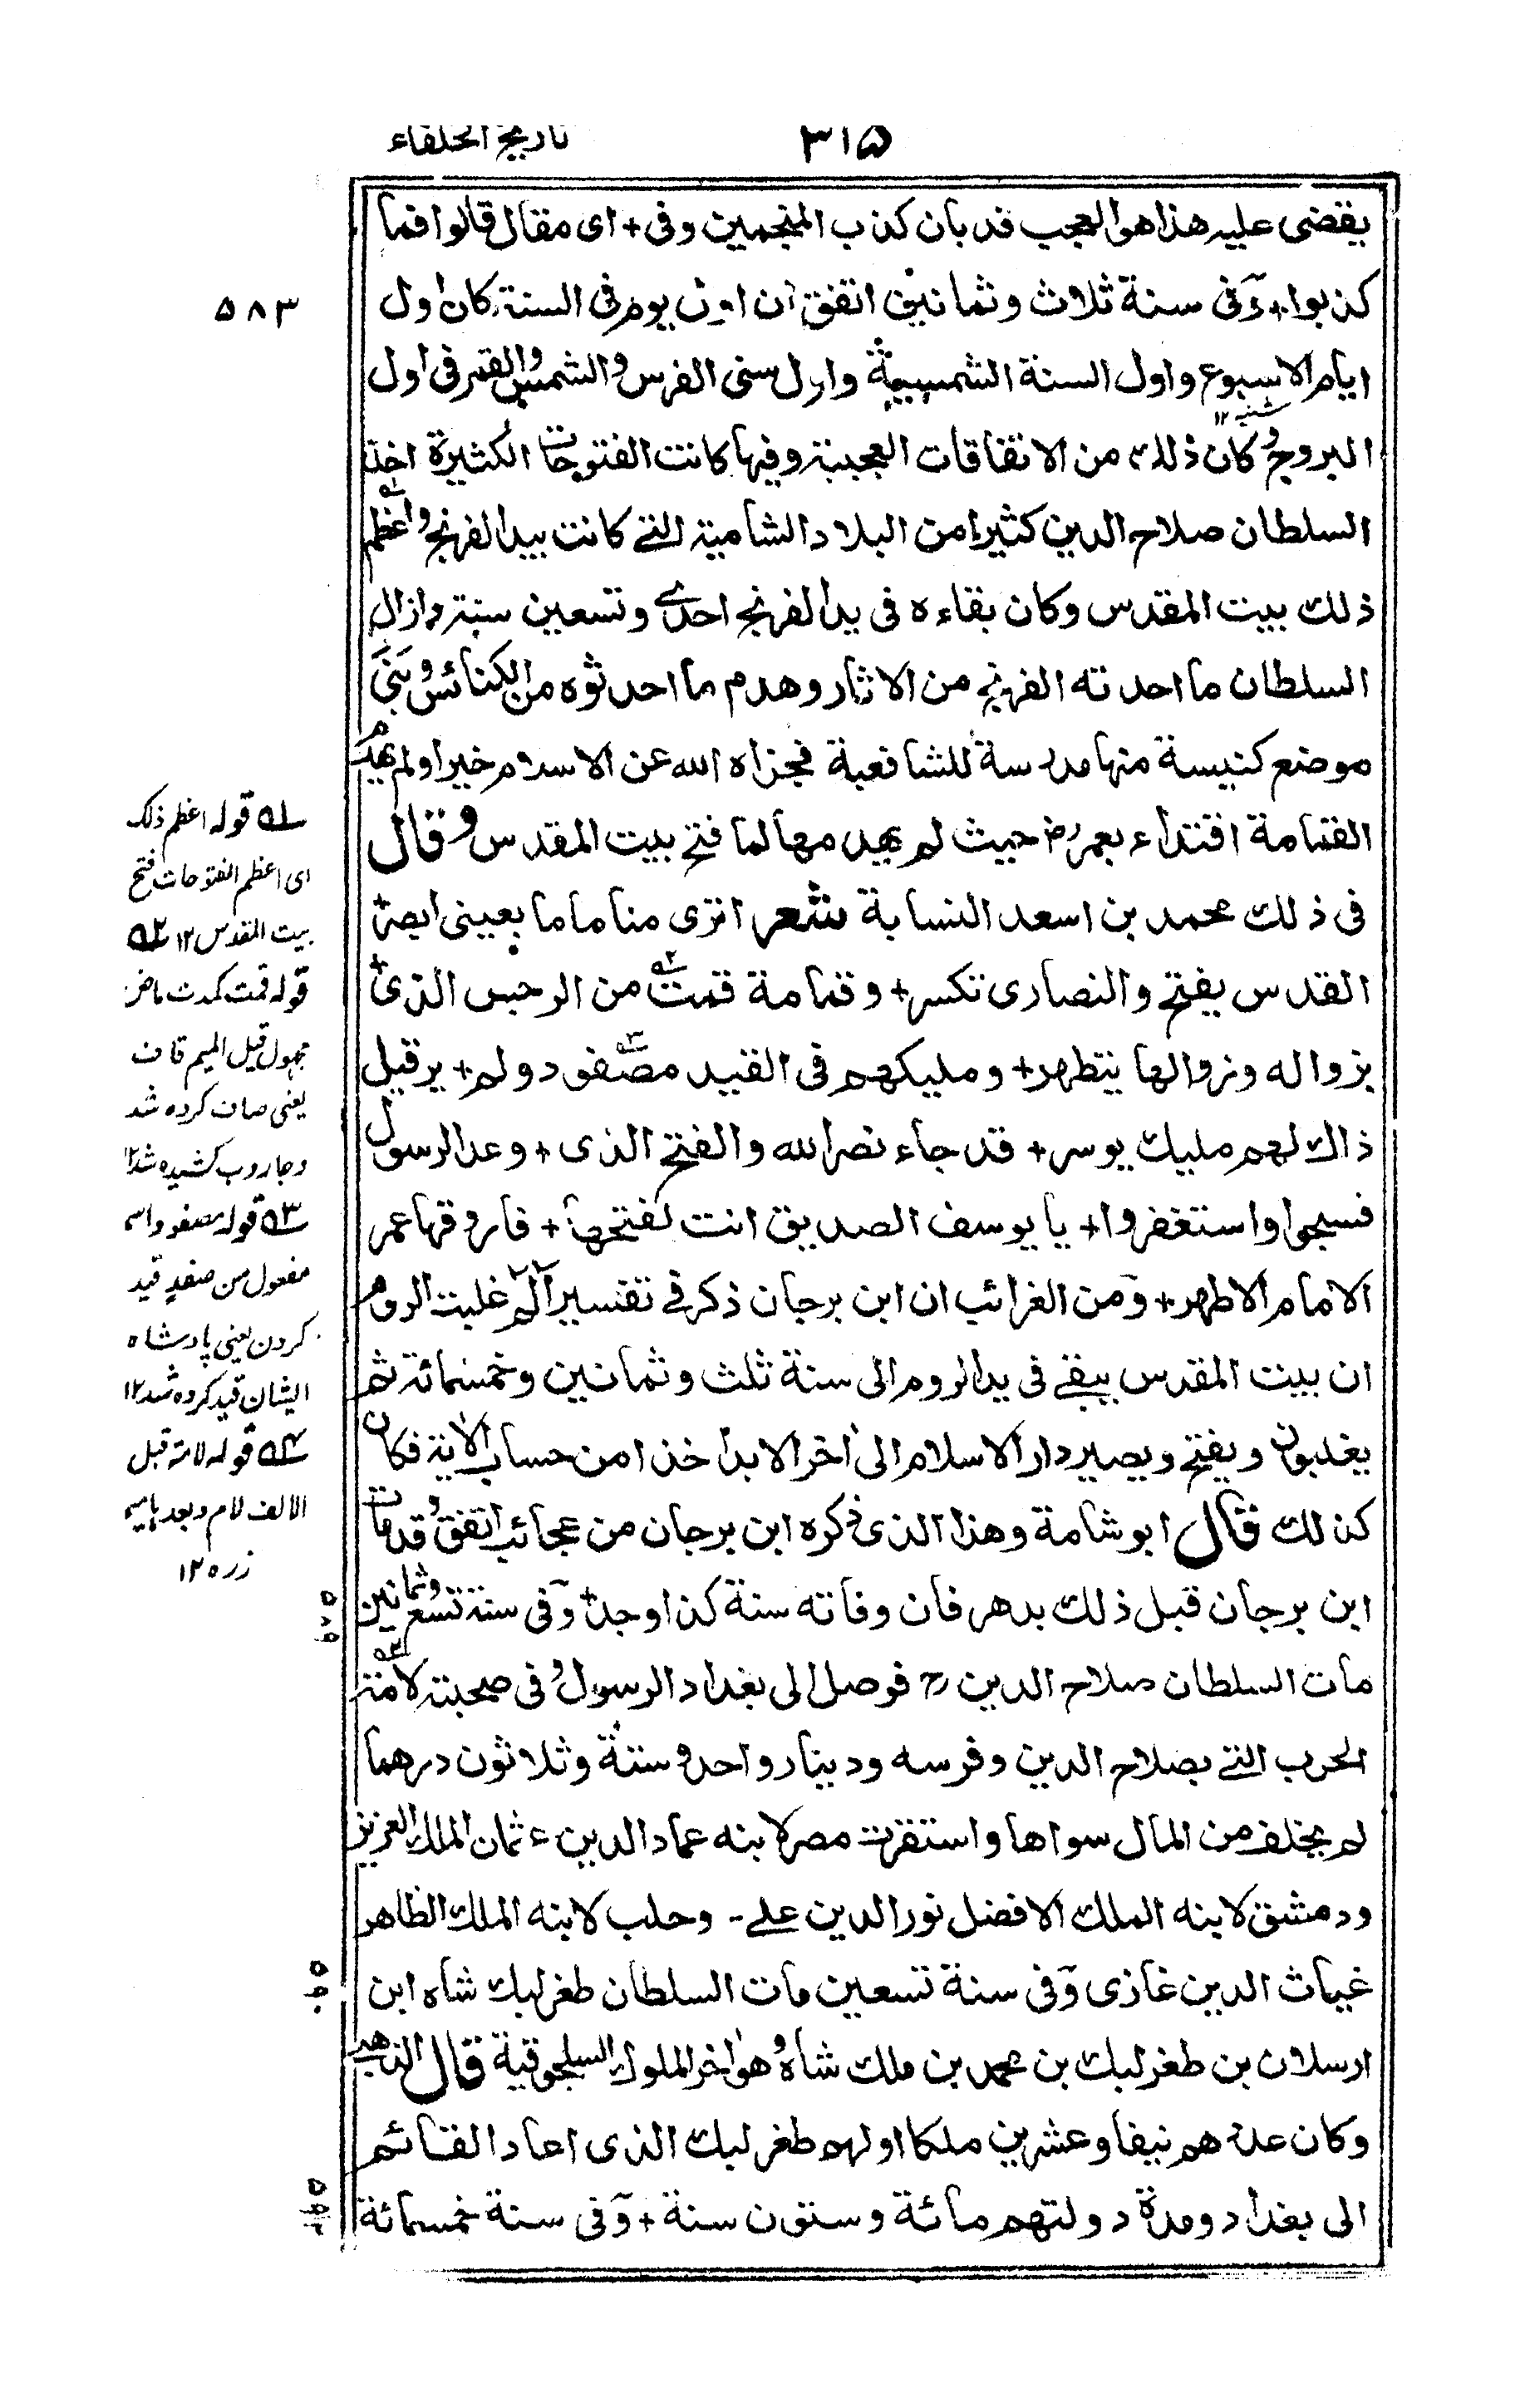 ٣١٥ تاريخ الخلفاء
يقضى عليه هذا هو العجب قد بان كذب المنجمين وفى + اى مقال قالوا فما
كذبوا + وفى سنة ثلاث وثمانين اتفق ان اول يوم فى السنة كان اول
ايام الاسبوع واول السنة الشمسية واول سنى الفرس والشمس والقمر فى اول
البروج وكان ذلك من الاتفاقات العجيبة وفيها كانت الفتوحات الكثيرة اخذ
السلطان صلاح الدين كثيرا من البلاد الشامية التے كانت بيد الفرنج واعظم
ذلك بيت المقدس وكان بقاءه فى يد الفرنج احدے وتسعين سنة وازال
السلطان ما احدثه الفرنج من الاثار وهدم ما احدثوه من الكنائس وبَنَى
موضع كنيسة منها مدرسة للشافعية فجزاه الله عن الاسلام خيرا ولم يهدم
القمامة اقتداء بعمر رض حيث لم يهدمها لما فتح بيت المقدس وقال
فى ذلك محمد بن اسعد النسابة شعر اترى مناما ما بعينى ابصر +
القدس يفتح والنصارى تكسر + وقمامة قمت من الرجس الذى +
بزواله وزوالها يتطهر + ومليكهم فى القيد مصفود ولم + ير قبل
ذاك لهم مليك يوسر + قد جاء نصر الله والفتح الذى + وعد الرسول
فسبحوا واستغفروا + يا يوسف الصديق انت لفتحها + فاروقها عمر
الامام الاطهر + ومن الغرائب ان ابن برجان ذكر فے تفسير الٓمٓ غلبت الروم
ان بيت المقدس يبقے فى يد الروم الى سنة ثلث وثمانين وخمسمائة ثم
يغلبون ويفتح ويصير دار الاسلام الى اخر الابد اخذا من حساب الاية فكان
كذلك قال ابو شامة وهذا الذى ذكره ابن برجان من عجائب اتفق وقد مات
ابن برجان قبل ذلك بدهر فان وفاته سنة كذا وجد + وفى سنة تسع وثمانين
مات السلطان صلاح الدين رح فوصل الى بغداد الرسول وفى صحبته لامة
الحرب التے بصلاح الدين وفرسه ودينار واحد وستة وثلاثون درهما
لم يخلف من المال سواها واستقرت مصر لابنه عماد الدين عثمان الملك العزيز
ودمشق لابنه الملك الافضل نور الدين علے - وحلب لابنه الملك الظاهر
غياث الدين غازى وفى سنة تسعين مات السلطان طغرلبك شاه ابن
ارسلان بن طغرلبك بن محمد بن ملك شاه وهو اخر الملوك السلجوقية قال الذهبے
وكان عدتهم نيفا وعشرين ملكا اولهم طغرلبك الذى اعاد القائم
الى بغداد ومدة دولتهم مائة وستون سنة + وفى سنة خمسمائة
٥٨٣
ـ٥١ قوله اعظم ذلك
اى اعظم الفتوحات فتح
بيت المقدس ١٢ ـ٥٢
قوله قمت كمدت ماض
مجهول قبل الميم قاف
يعنى صاف كرده شد
وجاروب كشيده شد ١٢
ـ٥٣ قوله مصفود اسم
مفعول من صفد قيد
كردن يعنى پادشاه
ايشان قيد كرده شد ١٢
ـ٥٤ قوله لامة قبل
الالف لام وبعدها ميم
زره ١٢
٥٨٩
٥٩٠